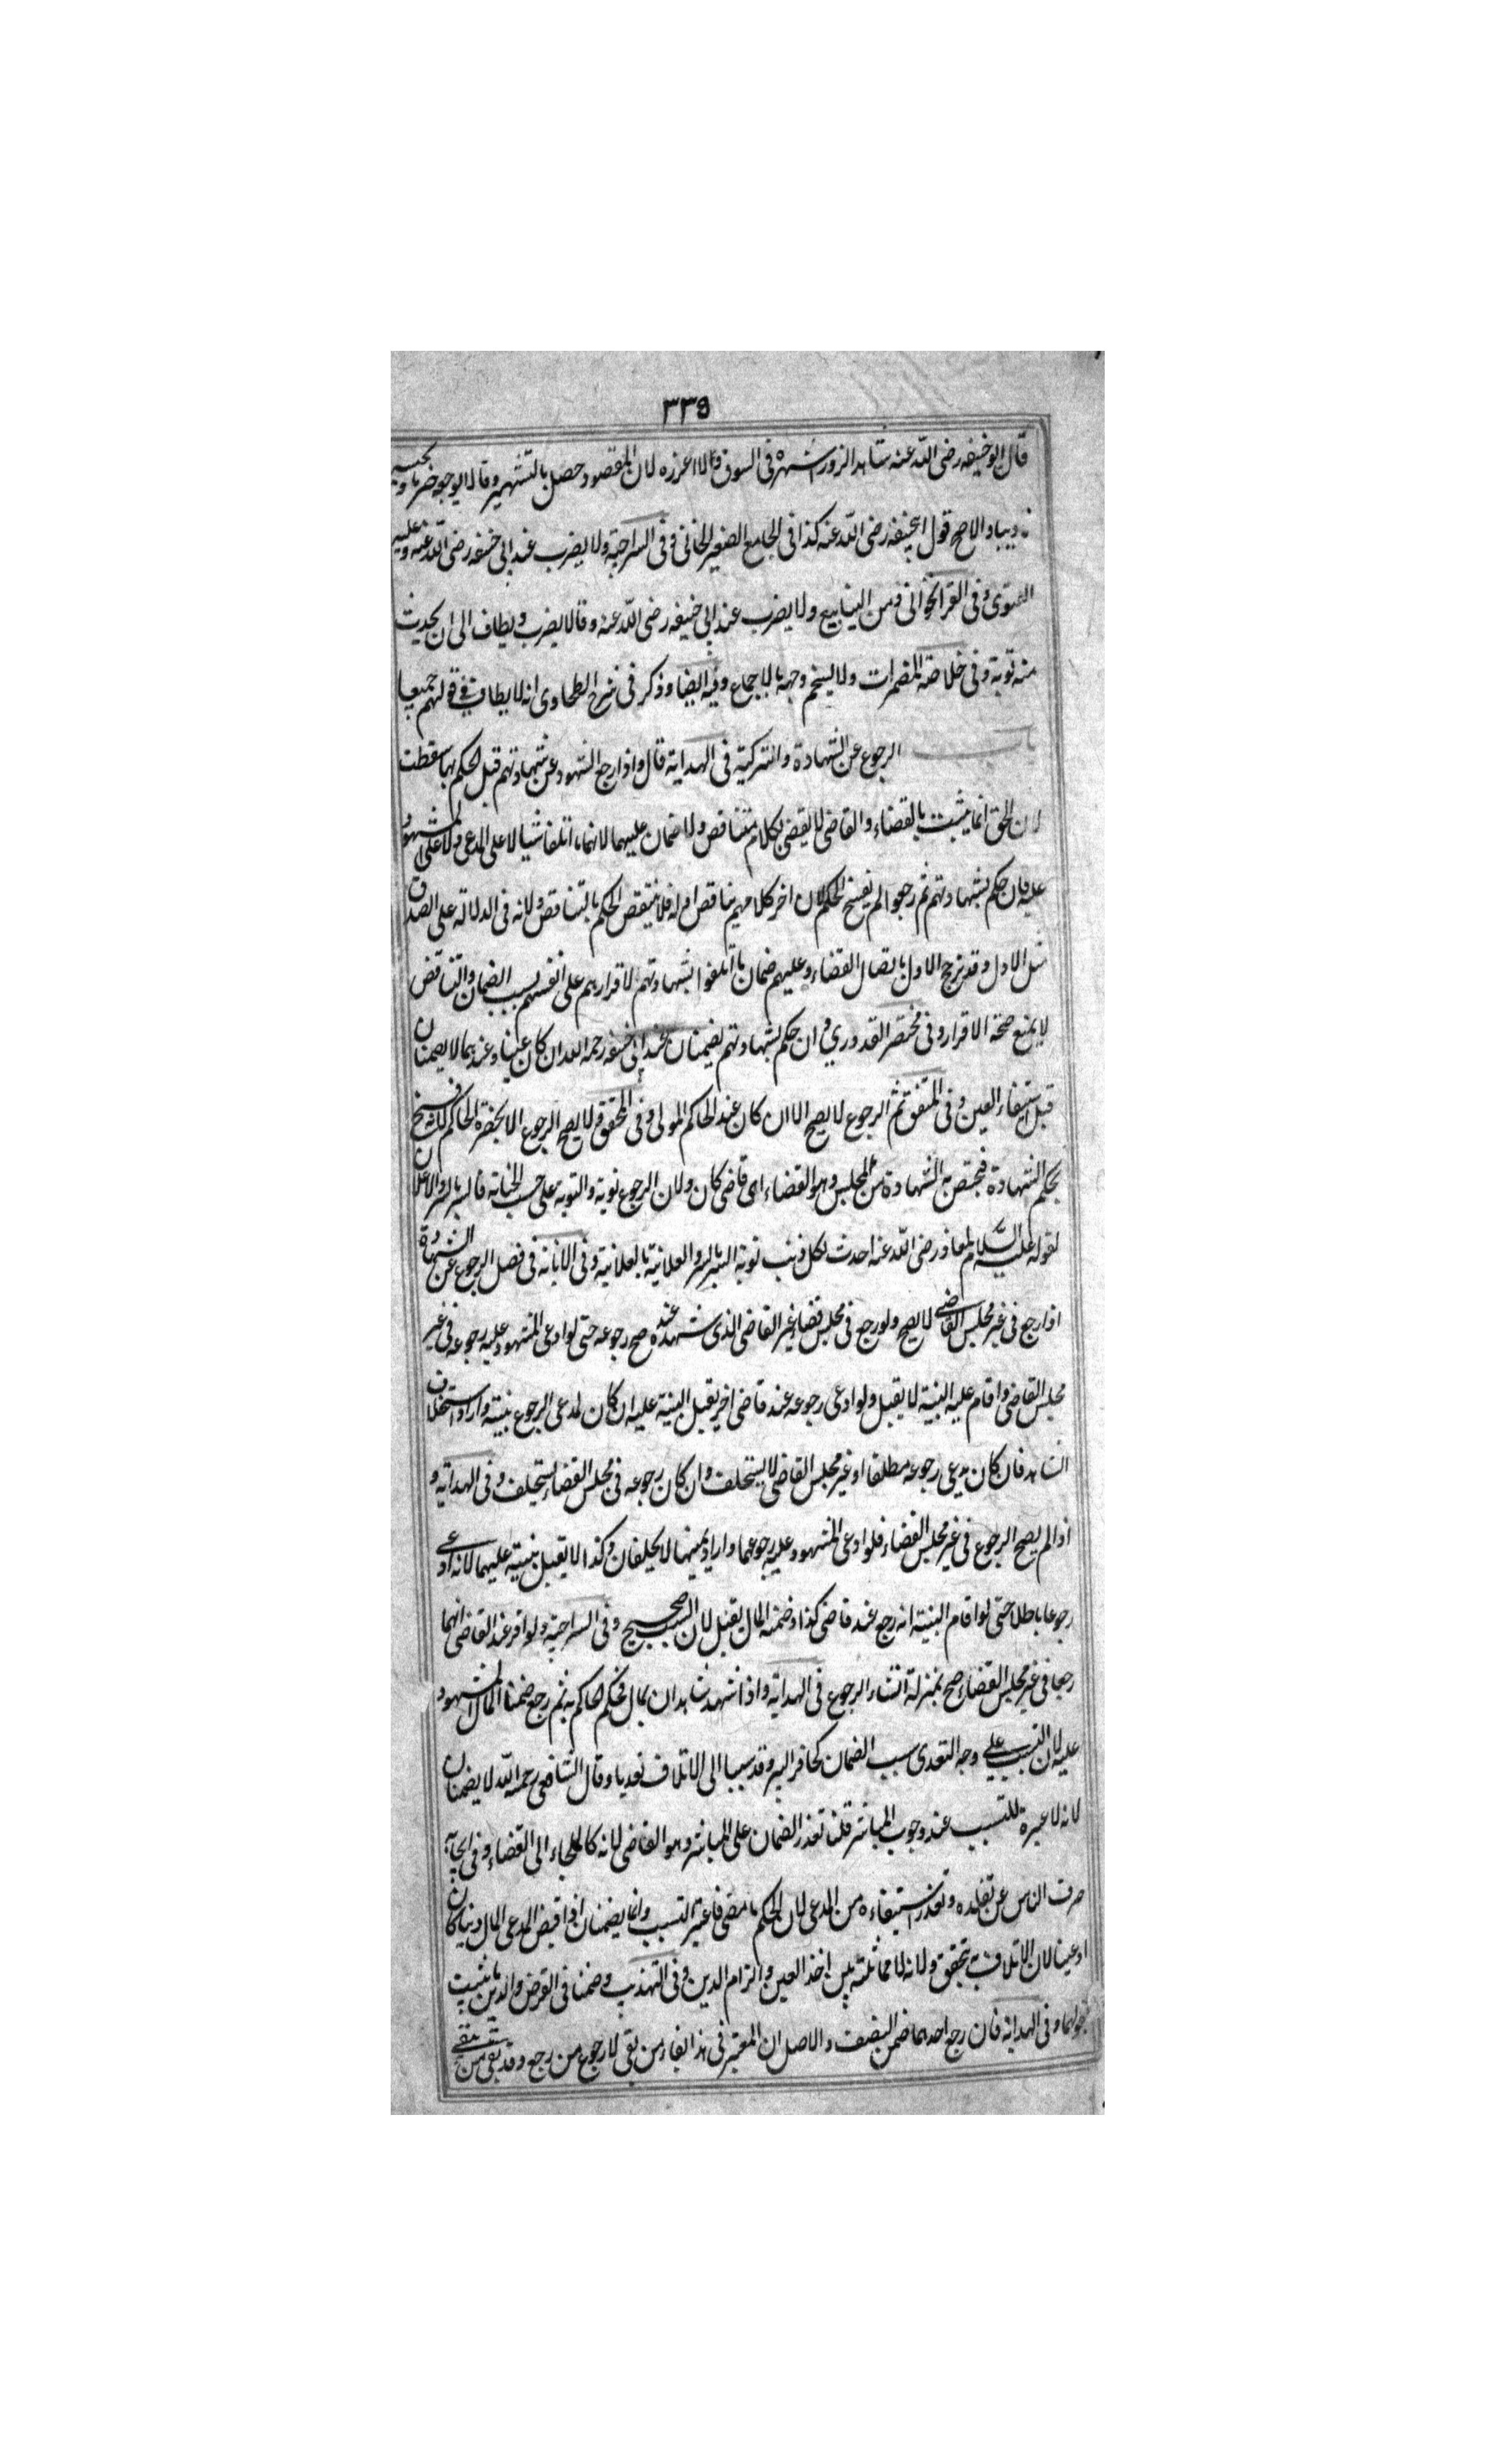 ٣٣٥
قال ابو حنيفه رضى الله عنه شاهد الزور اشهره فى السوق ولا اعزره لان المقصود حصل بالتشهير وقالا يوجع ضربا ويحبس
تاديبا والاصح قول ابيحنيفه رضى الله عنه كذا فى الجامع الصغير الخانى وفى السراجية ولا يضرب عند ابى حنيفه رضى الله عنه وعليه
الفتوى وفى القراخانى ومن الينابيع ولا يضرب عند ابى حنيفه رضى الله عنه وقالا يضرب ويطاف الى ان يحدث
منه توبة وفى خلاصة المضمرات ولا يسخم وجهه بالاجماع وفيه ايضا وذكر فى شرح الطحاوى انه لا يطاف فى قولهم جميعا
باب الرجوع عن الشهادة والتزكية فى الهداية قال واذا رجع الشهود عن شهادتهم قبل الحكم بها سقطت
لان الحق انما يثبت بالقضاء والقاضى لا يقضى بكلام متناقض ولا ضمان عليهما لانهما ما اتلفا شيا لا على المدعى ولا على المشهود
عليه فان حكم بشهادتهم ثم رجعوا لم يفسخ الحكم لان اخر كلامهم يناقض اوله فلا ينقض الحكم بالتناقض ولانه فى الدلالة على الصدق
مثل الاول وقد ترجح الاول باتصال القضاء وعليهم ضمان ما اتلفوا بشهادتهم لاقرارهم على انفسهم بسبب الضمان والتناقض
لا يمنع صحة الاقرار وفى مختصر القدوري ان حكم بشهادتهم يضمنان عند ابى حنيفه رحمه الله ان كان عينا وعندهما لا يضمنان
قبل استيفاء العين وفى المتفق ثم الرجوع لا يصح الا ان كان عند الحاكم المولى وفى المحقق ولا يصح الرجوع الا بحضرة الحاكم لانه فسخ
بحكم الشهادة فيختص به الشهادة من المجلس وهو القضاء اى قاضى كان ولان الرجوع توبة والتوبة على حسب الجناية فالسر بالسر والاعلان
لقوله عليه السلام لمعاذ رضى الله عنه احدث لكل ذنب توبة السر بالسر والعلانية بالعلانية وفى الابانة فى فصل الرجوع عن الشهادة
اذا رجع فى غير مجلس القاضى لا يصح ولو رجع فى مجلس قضاء غير القاضى الذى شهد عنده صح رجوعه حتى لو ادعى المشهود عليه رجوعه فى غير
مجلس القاضى واقام عليه البينة لا يقبل ولو ادعى رجوعه عند قاضى اخر يقبل البينة عليه ان كان لمدعى الرجوع بينة واراد استحلاف
الشاهد فان كان يدعى رجوعه مطلقا او غير مجلس القاضى لا يستحلف وان كان رجوعه فى مجلس القضاء يستحلف وفى الهداية و
اذا لم يصح الرجوع فى غير مجلس القضاء فلو ادعى المشهود عليه رجوعهما واراد يمينهما لا يحلفان وكذا لا يقبل بينته عليهما لانه ادعى
رجوعا باطلا حتى لو اقام البينة انه رجع عند قاضى كذا وضمنه المال يقبل لان السبب صحيح وفى السراجية ولو اقر عند القاضى انهما
رجعا فى غير مجلس القضاء صح بمنزلة انشاء الرجوع فى الهداية واذا شهد شاهدان بمال فحكم الحاكم به ثم رجع ضمنا المال المشهود
عليه لان التسبب على وجه التعدى سبب الضمان كحافر البير وقد سببا الى الاتلاف تعديا وقال الشافعى رحمه الله لا يضمنان
لانه لا عبرة للتسبب عند وجوب المباشر قلنا تعذر الضمان على المباشر وهو القاضى لانه كالملجاء الى القضاء وفى ايجابه
صرف الناس عن تقلده وتعذر استيفاءه من المدعى لان الحكم ماض فاعتبر التسبب وانما يضمنان اذا قبض المدعى المال دينا كان
او عينا لان الاتلاف به تحقق ولانه لا مماثلة بين اخذ العين والزام الدين وفى التهذيب وضمنا فى القرض والدين ما يثبت
بقولهما وفى الهداية فان رجع احدهما ضمن النصف والاصل ان المعتبر فى هذا بقاء من بقى لا رجوع من رجع وقد بقى من يبقى